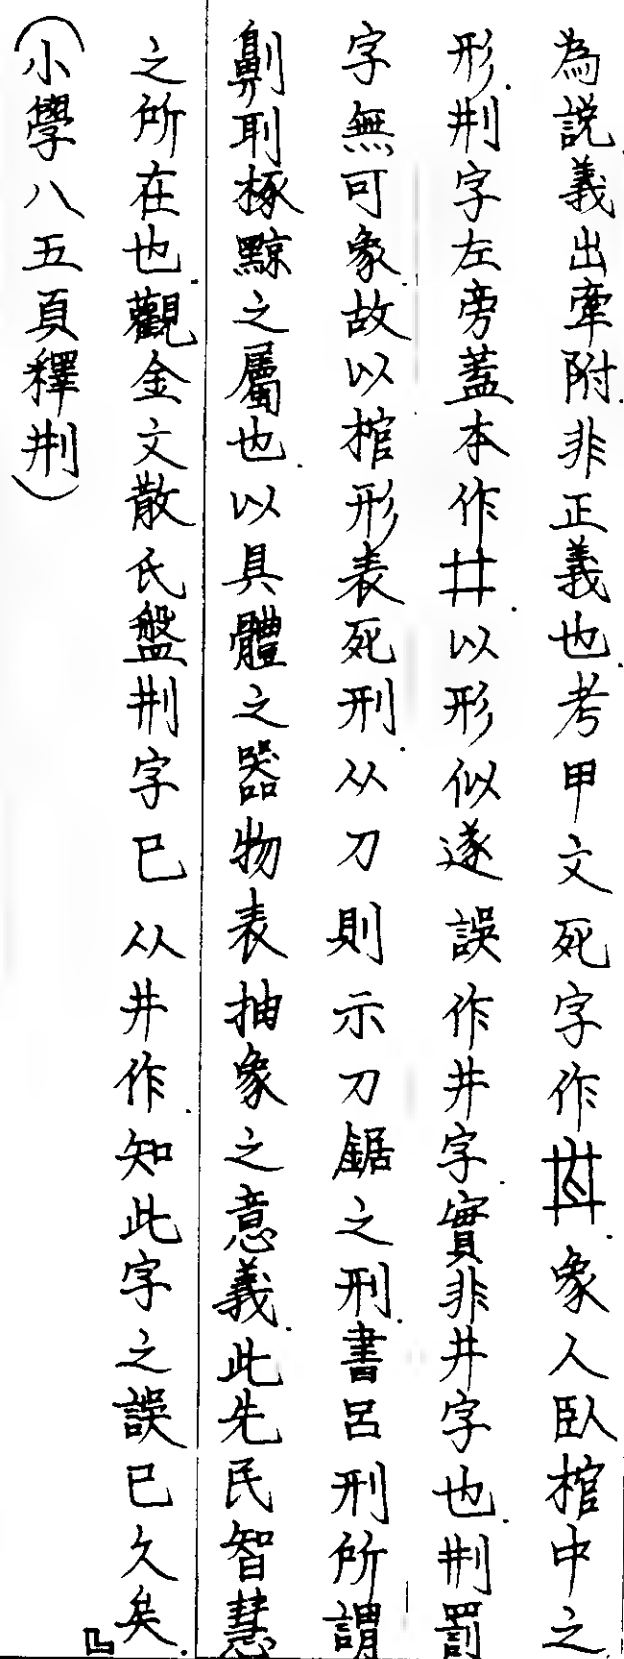 為説義出牽附非正義也考甲文死字作.象人臥棺中之
形.刑字左旁蓋本作.以形似遂誤作井字.實非井字也.刑罰
字無可象.故以棺形表死刑.从刀則示刀鋸之刑.書呂刑所謂
劓刵椓黥之屬也.以具體之器物表抽象之意義.此先民智慧
之所在也觀金文散氏盤刑字已从井作.知此字之誤已久矣.』
(小學八五頁釋刑)